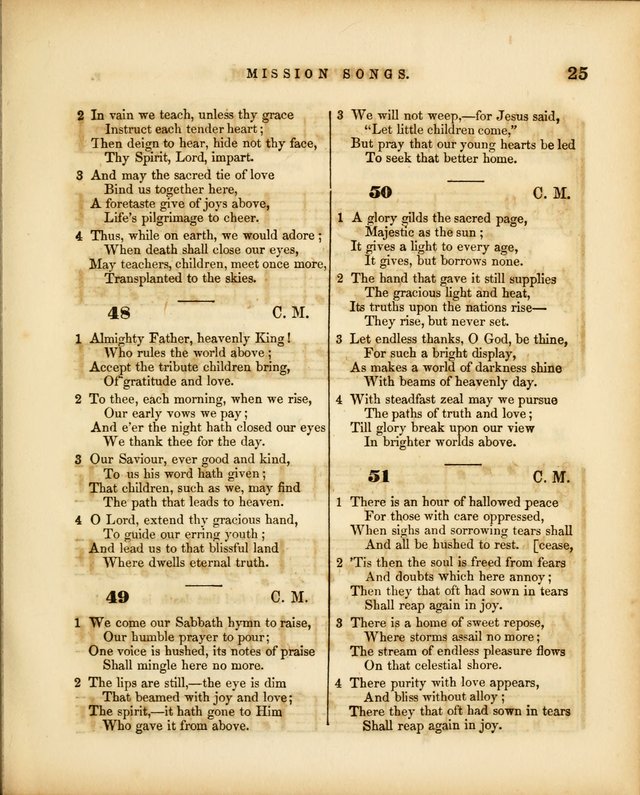 MISSION SONGS. 25
2 In vain we teach, unless thy grace
Instruct each tender heart;
Then deign to hear, hide not thy face,
Thy Spirit, Lord, impart.
3 And may the sacred tie of love
Bind us together here,
A foretaste give of joys above,
Life's pilgrimage to cheer.
4 Thus, while on earth, we would adore;
When death shall close our eyes,
May teachers, children, meet once more,
Transplanted to the skies.
48 C. M.
1 Almighty Father, heavenly King!
Who rules the world above;
Accept the tribute children bring,
Of gratitude and love.
2 To thee, each morning, when we rise,
Our early vows we pay;
And e'er the night hath closed our eyes
We thank thee for the day.
3 Our Saviour, ever good and kind,
To us his word hath given;
That children, such as we, may find
The path that leads to heaven.
4 O Lord, extend thy gracious hand,
To guide our erring youth;
And lead us to that blissful land
Where dwells eternal truth.
49 C. M.
1 We come our Sabbath hymn to raise,
Our humble prayer to pour;
One voice is hushed, its notes of praise
Shall mingle here no more.
2 The lips are still,—the eye is dim
That beamed with joy and love;
The spirit,—it hath gone to Him
Who gave it from above.
3 We will not weep,—for Jesus said,
"Let little children come,"
But pray that our young hearts be led
To seek that better home.
50 C. M.
1 A glory gilds the sacred page,
Majestic as the sun;
It gives a light to every age,
It gives, but borrows none.
2 The hand that gave it still supplies
The gracious light and heat,
Its truths upon the nations rise—
They rise, but never set.
3 Let endless thanks, O God, be thine,
For such a bright display,
As makes a world of darkness shine
With beams of heavenly day.
4 With steadfast zeal may we pursue
The paths of truth and love;
Till glory break upon our view
In brighter worlds above.
51 C. M.
1 There is an hour of hallowed peace
For those with care oppressed,
When sighs and sorrowing tears shall
And all be hushed to rest. [cease,
2 'Tis then the soul is freed from fears
And doubts which here annoy;
Then they that oft had sown in tears
Shall reap again in joy.
3 There is a home of sweet repose,
Where storms assail no more;
The stream of endless pleasure flows
On that celestial shore.
4 There purity with love appears,
And bliss without alloy;
There they that oft had sown in tears
Shall reap again in joy.